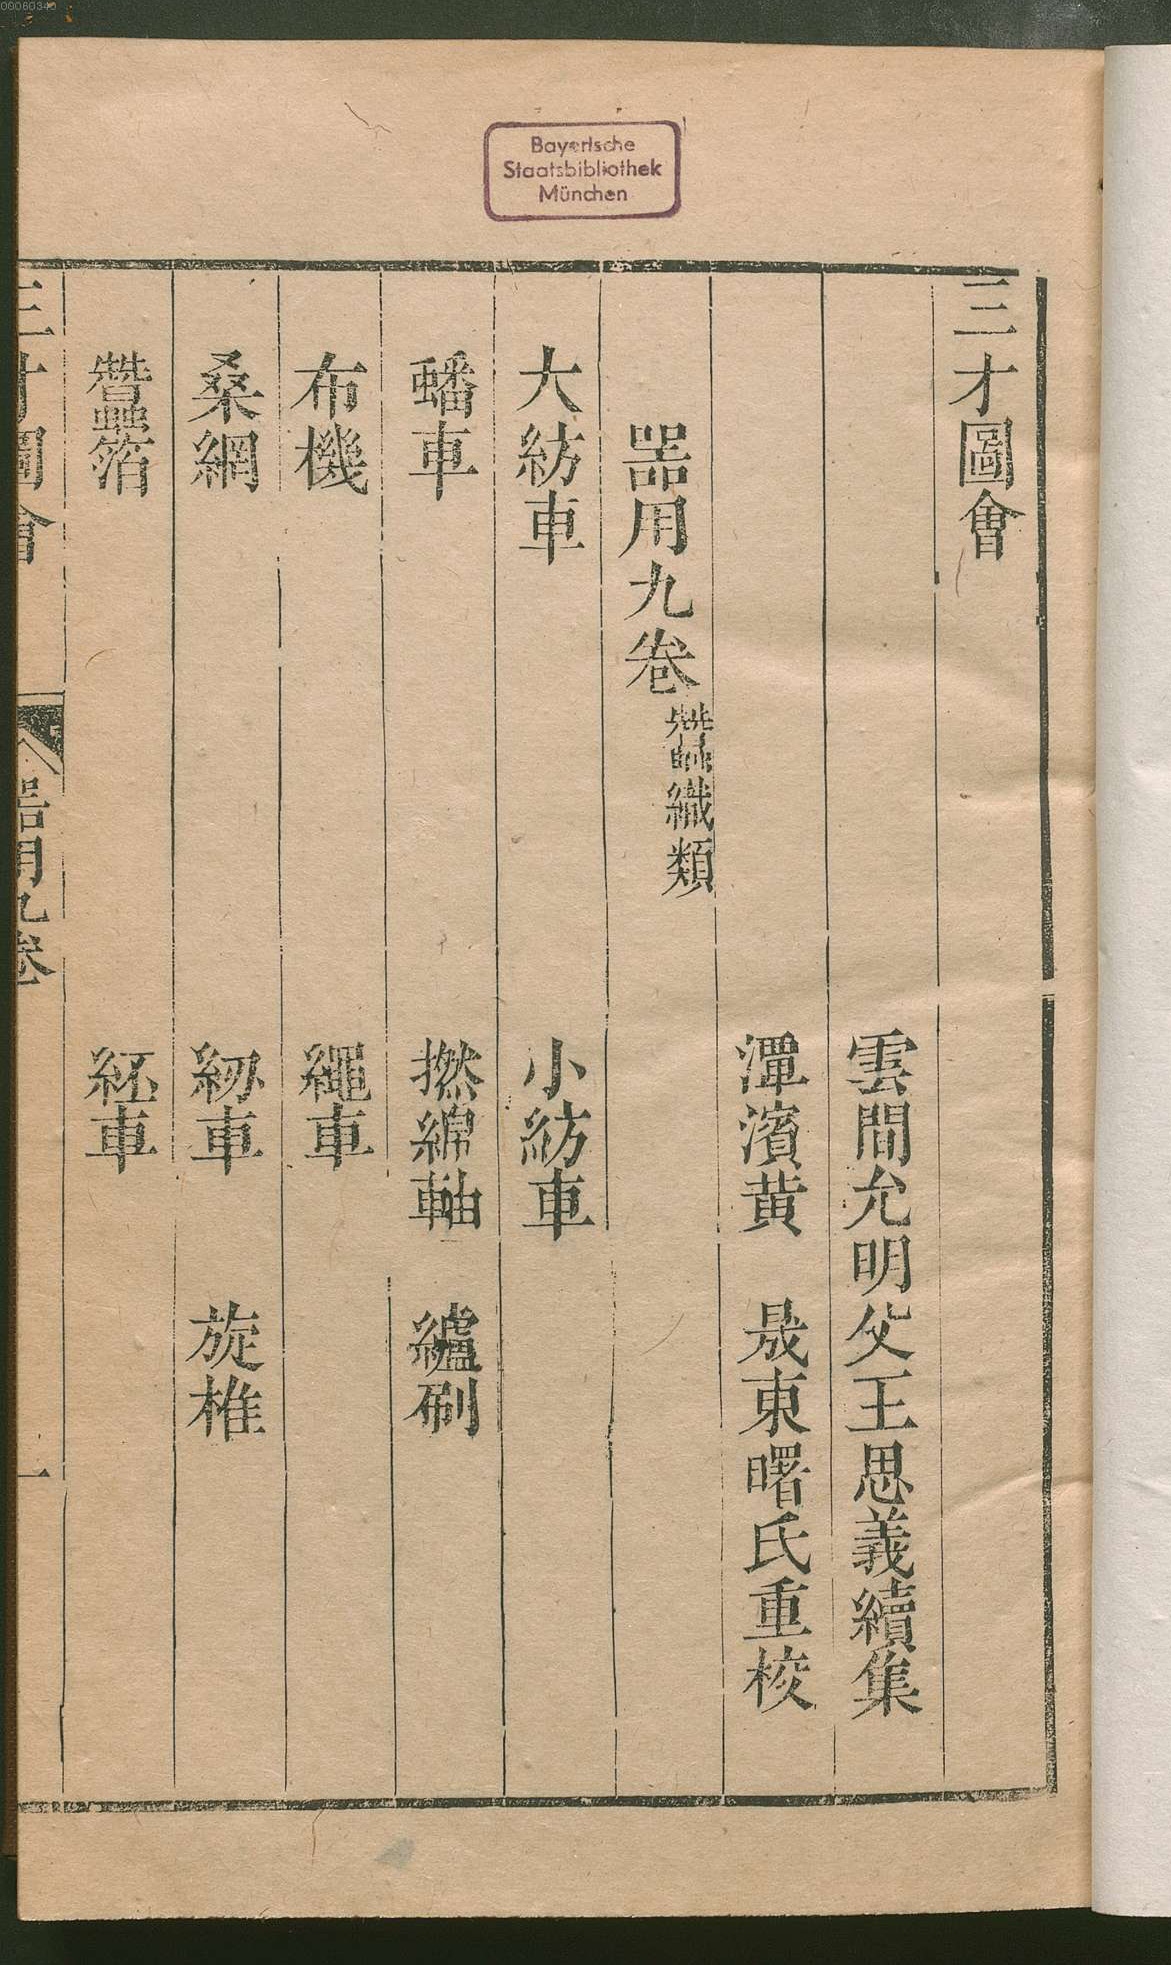 00060340
Bayerische
Staatsbibliothek
München
三才圖會
雲間允明父王思義續集
潭濱黄 晟東曙氏重校
器用九卷 蠶織類
大紡車 小紡車
蟠車 撚綿軸 纑刷
布機 繩車
桑網 紉車 旋椎
蠶箔 紝車
三才圖會 器用九卷 一